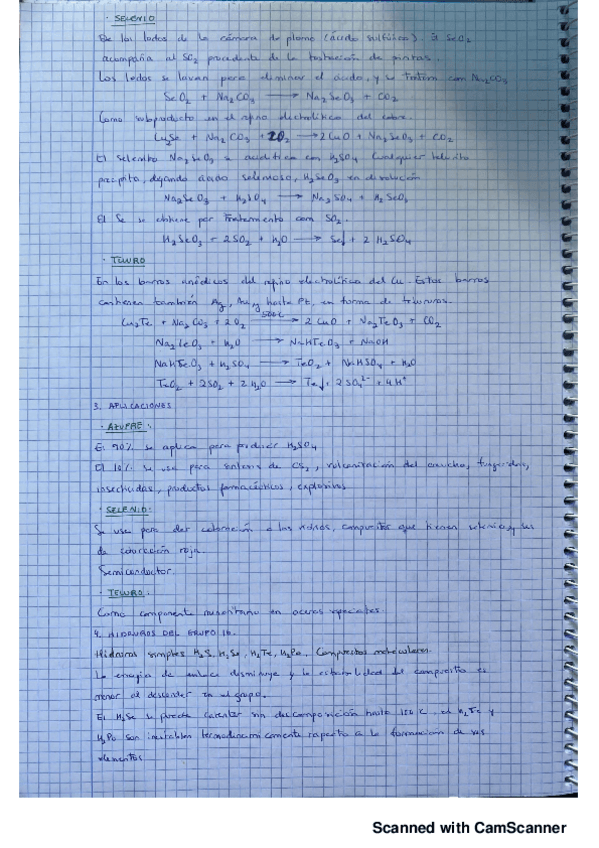 · SELENIO
De los lodos de la cámara de plomo (ácido sulfúrico). El SeO2
acompaña al SO2 procedente de la tostación de piritas.
Los lodos se lavan para eliminar el ácido, y se tratan con Na2CO3
SeO2 + Na2CO3 → Na2SeO3 + CO2
Como subproducto en el refino electrolítico del cobre.
Cu2Se + Na2CO3 + 2O2 → 2CuO + Na2SeO3 + CO2
El selenito Na2SeO3 se acidifica con H2SO4. Cualquier telurito
precipita, dejando ácido selenioso, H2SeO3 en disolución
Na2SeO3 + H2SO4 → Na2SO4 + H2SeO3
El Se se obtiene por tratamiento con SO2.
H2SeO3 + 2SO2 + H2O → Se↓ + 2H2SO4
· TELURO
En los barros anódicos del refino electrolítico del Cu. Estos barros
contienen también Ag, Au, y hasta Pt, en forma de telururos.
Cu2Te + Na2CO3 + 2O2 → 2CuO + Na2TeO3 + CO2
Na2TeO3 + H2O → NaHTeO3 + NaOH
NaHTeO3 + H2SO4 → TeO2 + NaHSO4 + H2O
TeO2 + 2SO2 + 2H2O → Te↓ + 2SO4²⁻ + 4H⁺
3. APLICACIONES
· AZUFRE:
El 90% se aplica para producir H2SO4
El 10% se usa para síntesis de CS2, vulcanización del caucho, fungicidas,
insecticidas, productos farmacéuticos, explosivos
· SELENIO:
Se usa para dar coloración a los vidrios, compuestos que tienen selenio y
de coloración roja.
Semiconductor.
· TELURO:
Como componente minoritario en aceros especiales.
4. HIDRUROS DEL GRUPO 16.
Hidruros simples H2S, H2Se, H2Te, H2Po. Compuestos moleculares.
La energía de enlace disminuye y la estabilidad del compuesto es
menor al descender en el grupo.
El H2Se se puede calentar sin descomposición hasta el H2Te y
H2Po son inestables termodinámicamente respecto a la formación de sus
elementos.
Scanned with CamScanner